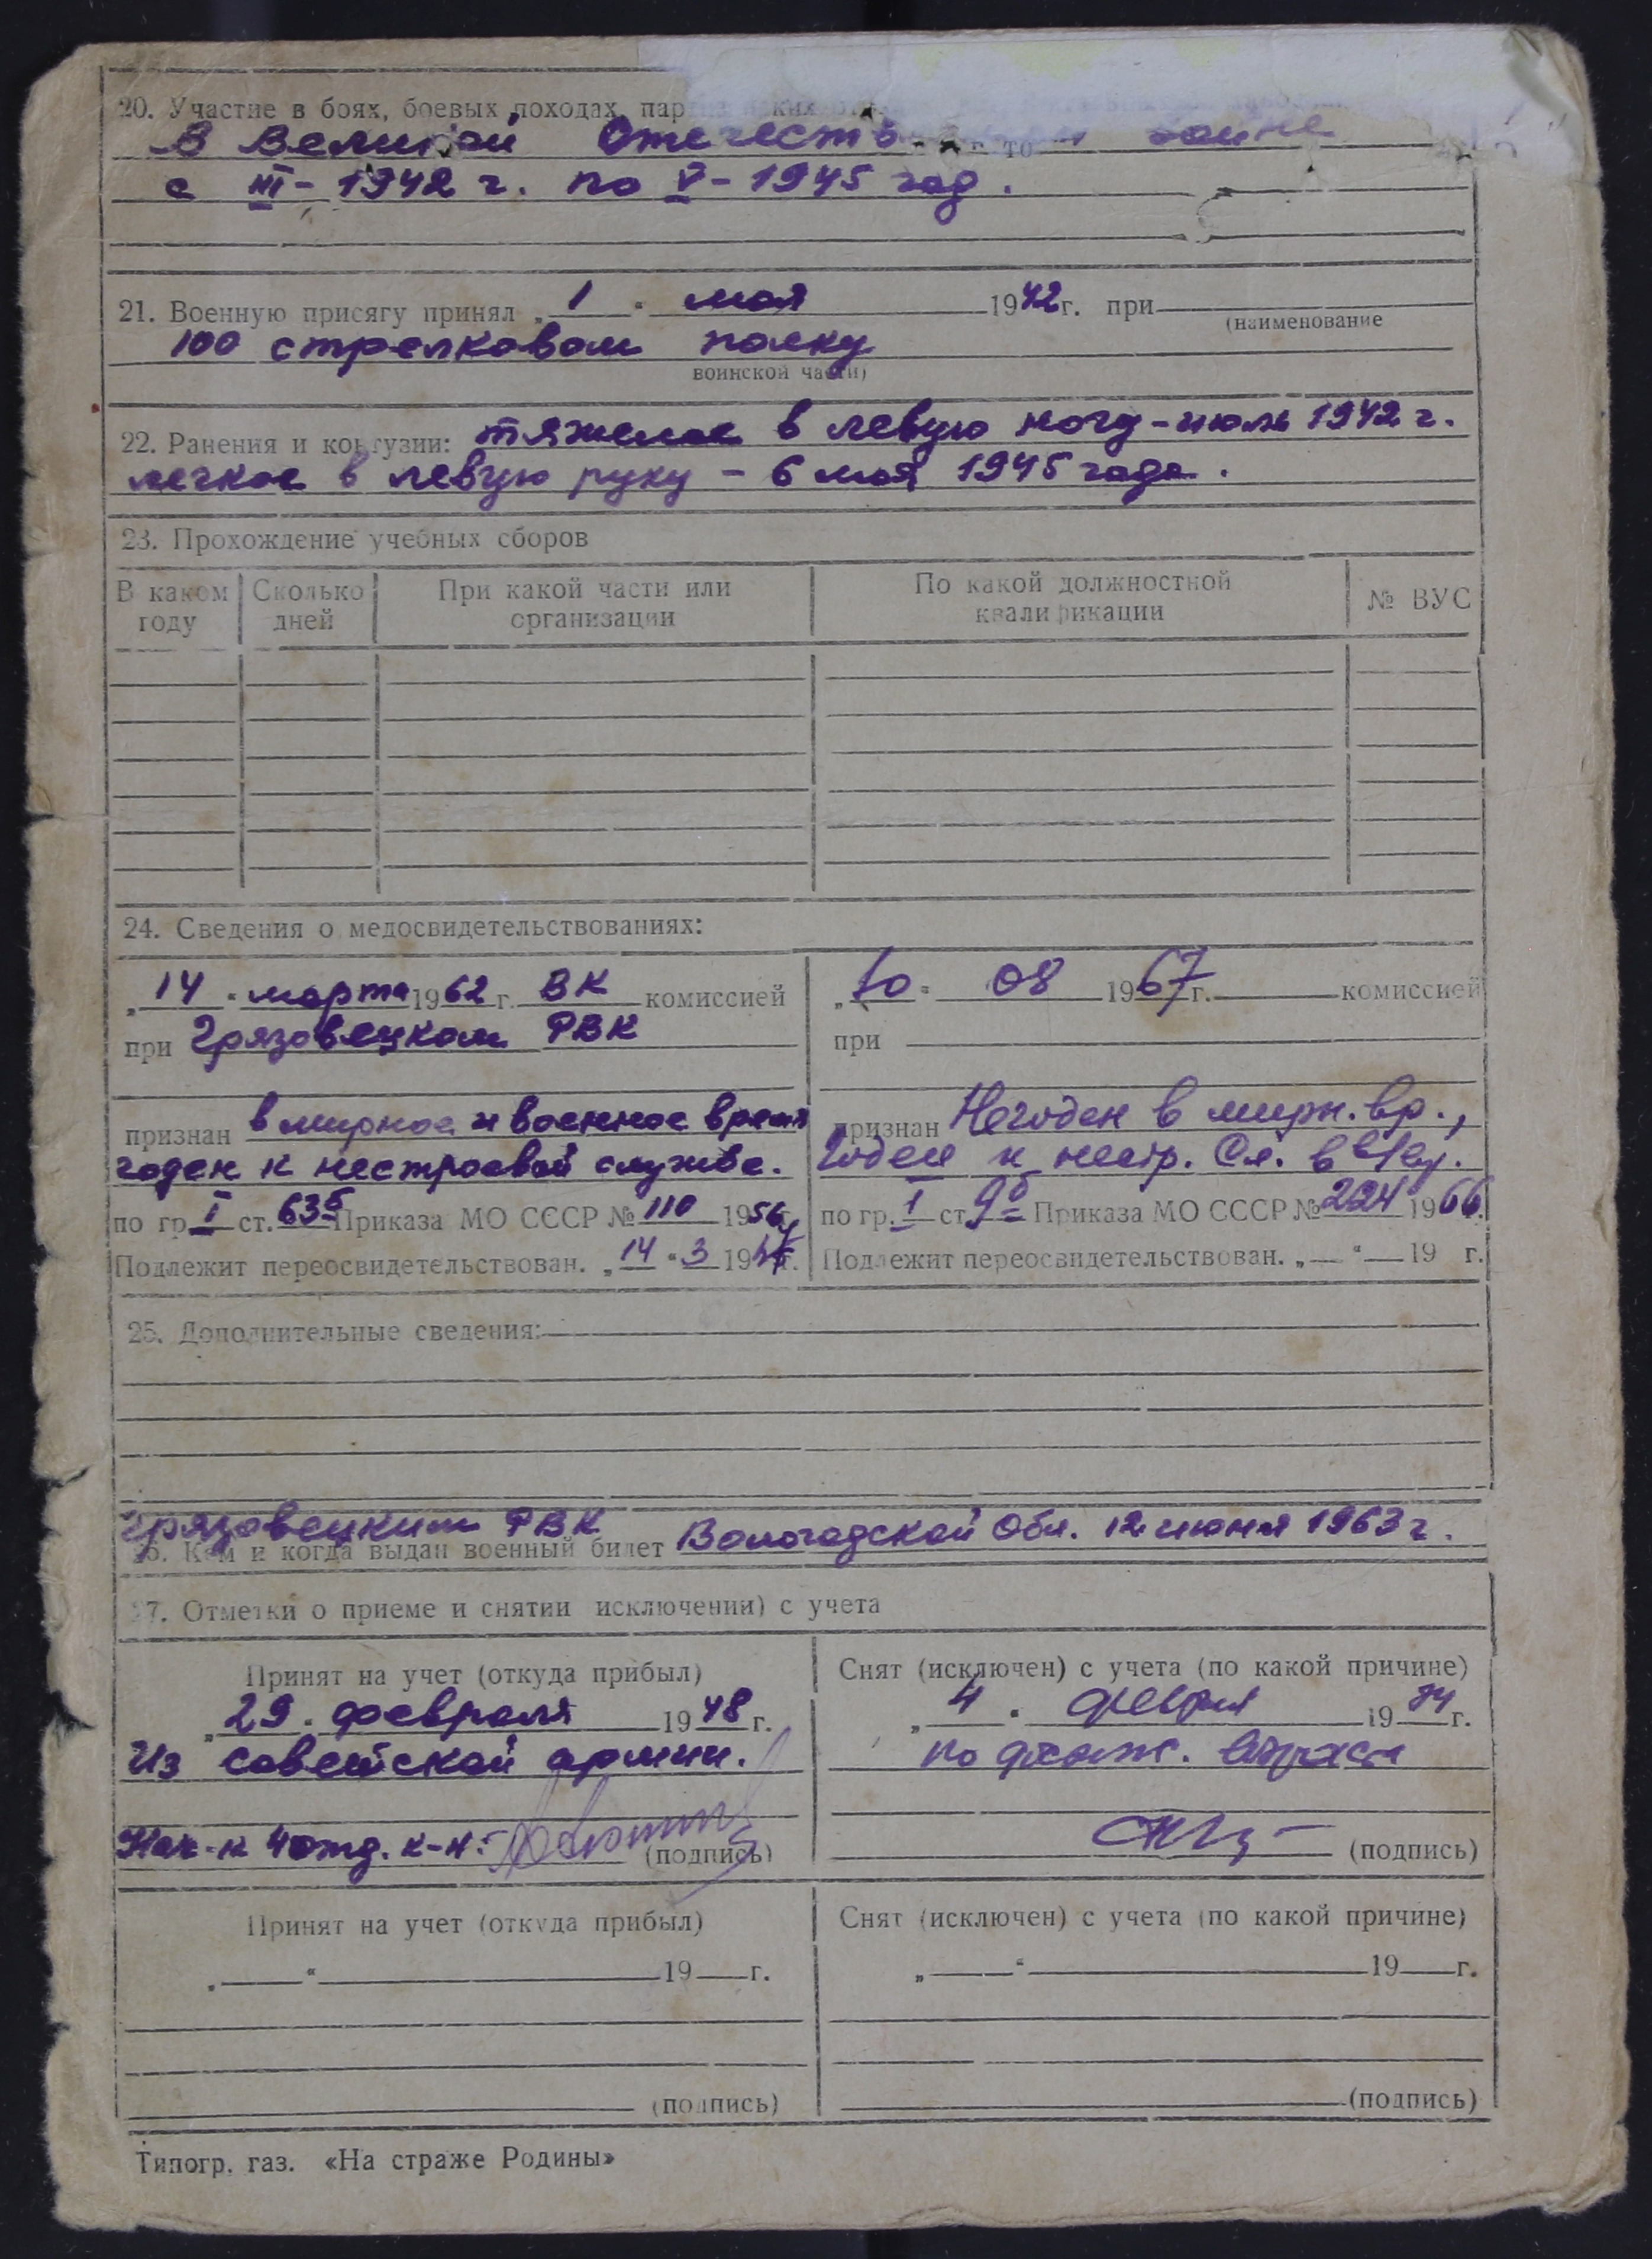 20. Участие в боях, боевых походах,
В Великой Отечеств войне
с III - 1942 г. по V - 1945 год.
21. Военную присягу принял „ 1 “ мая 1942 г. при
(наименование
100 стрелковом полку
воинской части)
22. Ранения и контузии: тяжелое в левую ногу - июль 1942 г.
легкое в левую руку - 6 мая 1945 года.
23. Прохождение учебных сборов
В каком году Сколько дней При какой части или организации По какой должностной квалификации № ВУС
24. Сведения о медосвидетельствованиях:
„ 14 “ марта 1962 г. ВК комиссией
при Грязовецком РВК
признан в мирное и военное время
годен к нестроевой службе.
по гр. I ст. 63б Приказа МО СССР № 110 1956 г.
Подлежит переосвидетельствован. „ 14 “ 3 19 г.
„ 10 “ 08 1967 г. комиссией
при
признан Негоден в мирн. вр.,
Годен к нестр. Сл. в
по гр. 1 ст. 9б Приказа МО СССР № 224 1966 г.
Подлежит переосвидетельствован. „ — “ — 19 г.
25. Дополнительные сведения:
Грязовецким РВК
26. Кем и когда выдан военный билет Вологодской Обл. 12 июня 1963 г.
27. Отметки о приеме и снятии исключении) с учета
Принят на учет (откуда прибыл)
„ 29 “ февраля 1948 г.
Из советской армии.
Нач-к 4 отд. к-н:
(подпись)
Снят (исключен) с учета (по какой причине)
„ 4 “ февраля 1974 г.
по достиж. возраста
(подпись)
Принят на учет (откуда прибыл)
„ “ 19 г.
(подпись)
Снят (исключен) с учета (по какой причине)
„ “ 19 г.
(подпись)
Типогр. газ. «На страже Родины»